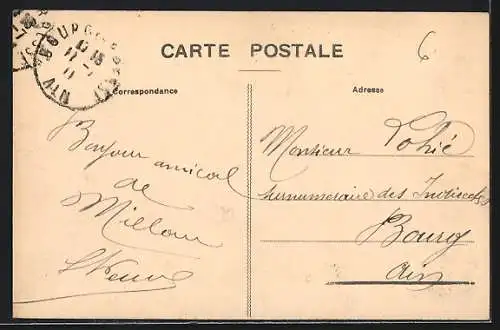 CARTE POSTALE
6
BOURG
AIN
Correspondance
Adresse
Bonjour amical
de
Millau
Monsieur Lohié
surnumeraire des Indirectes
Bourg
Ain